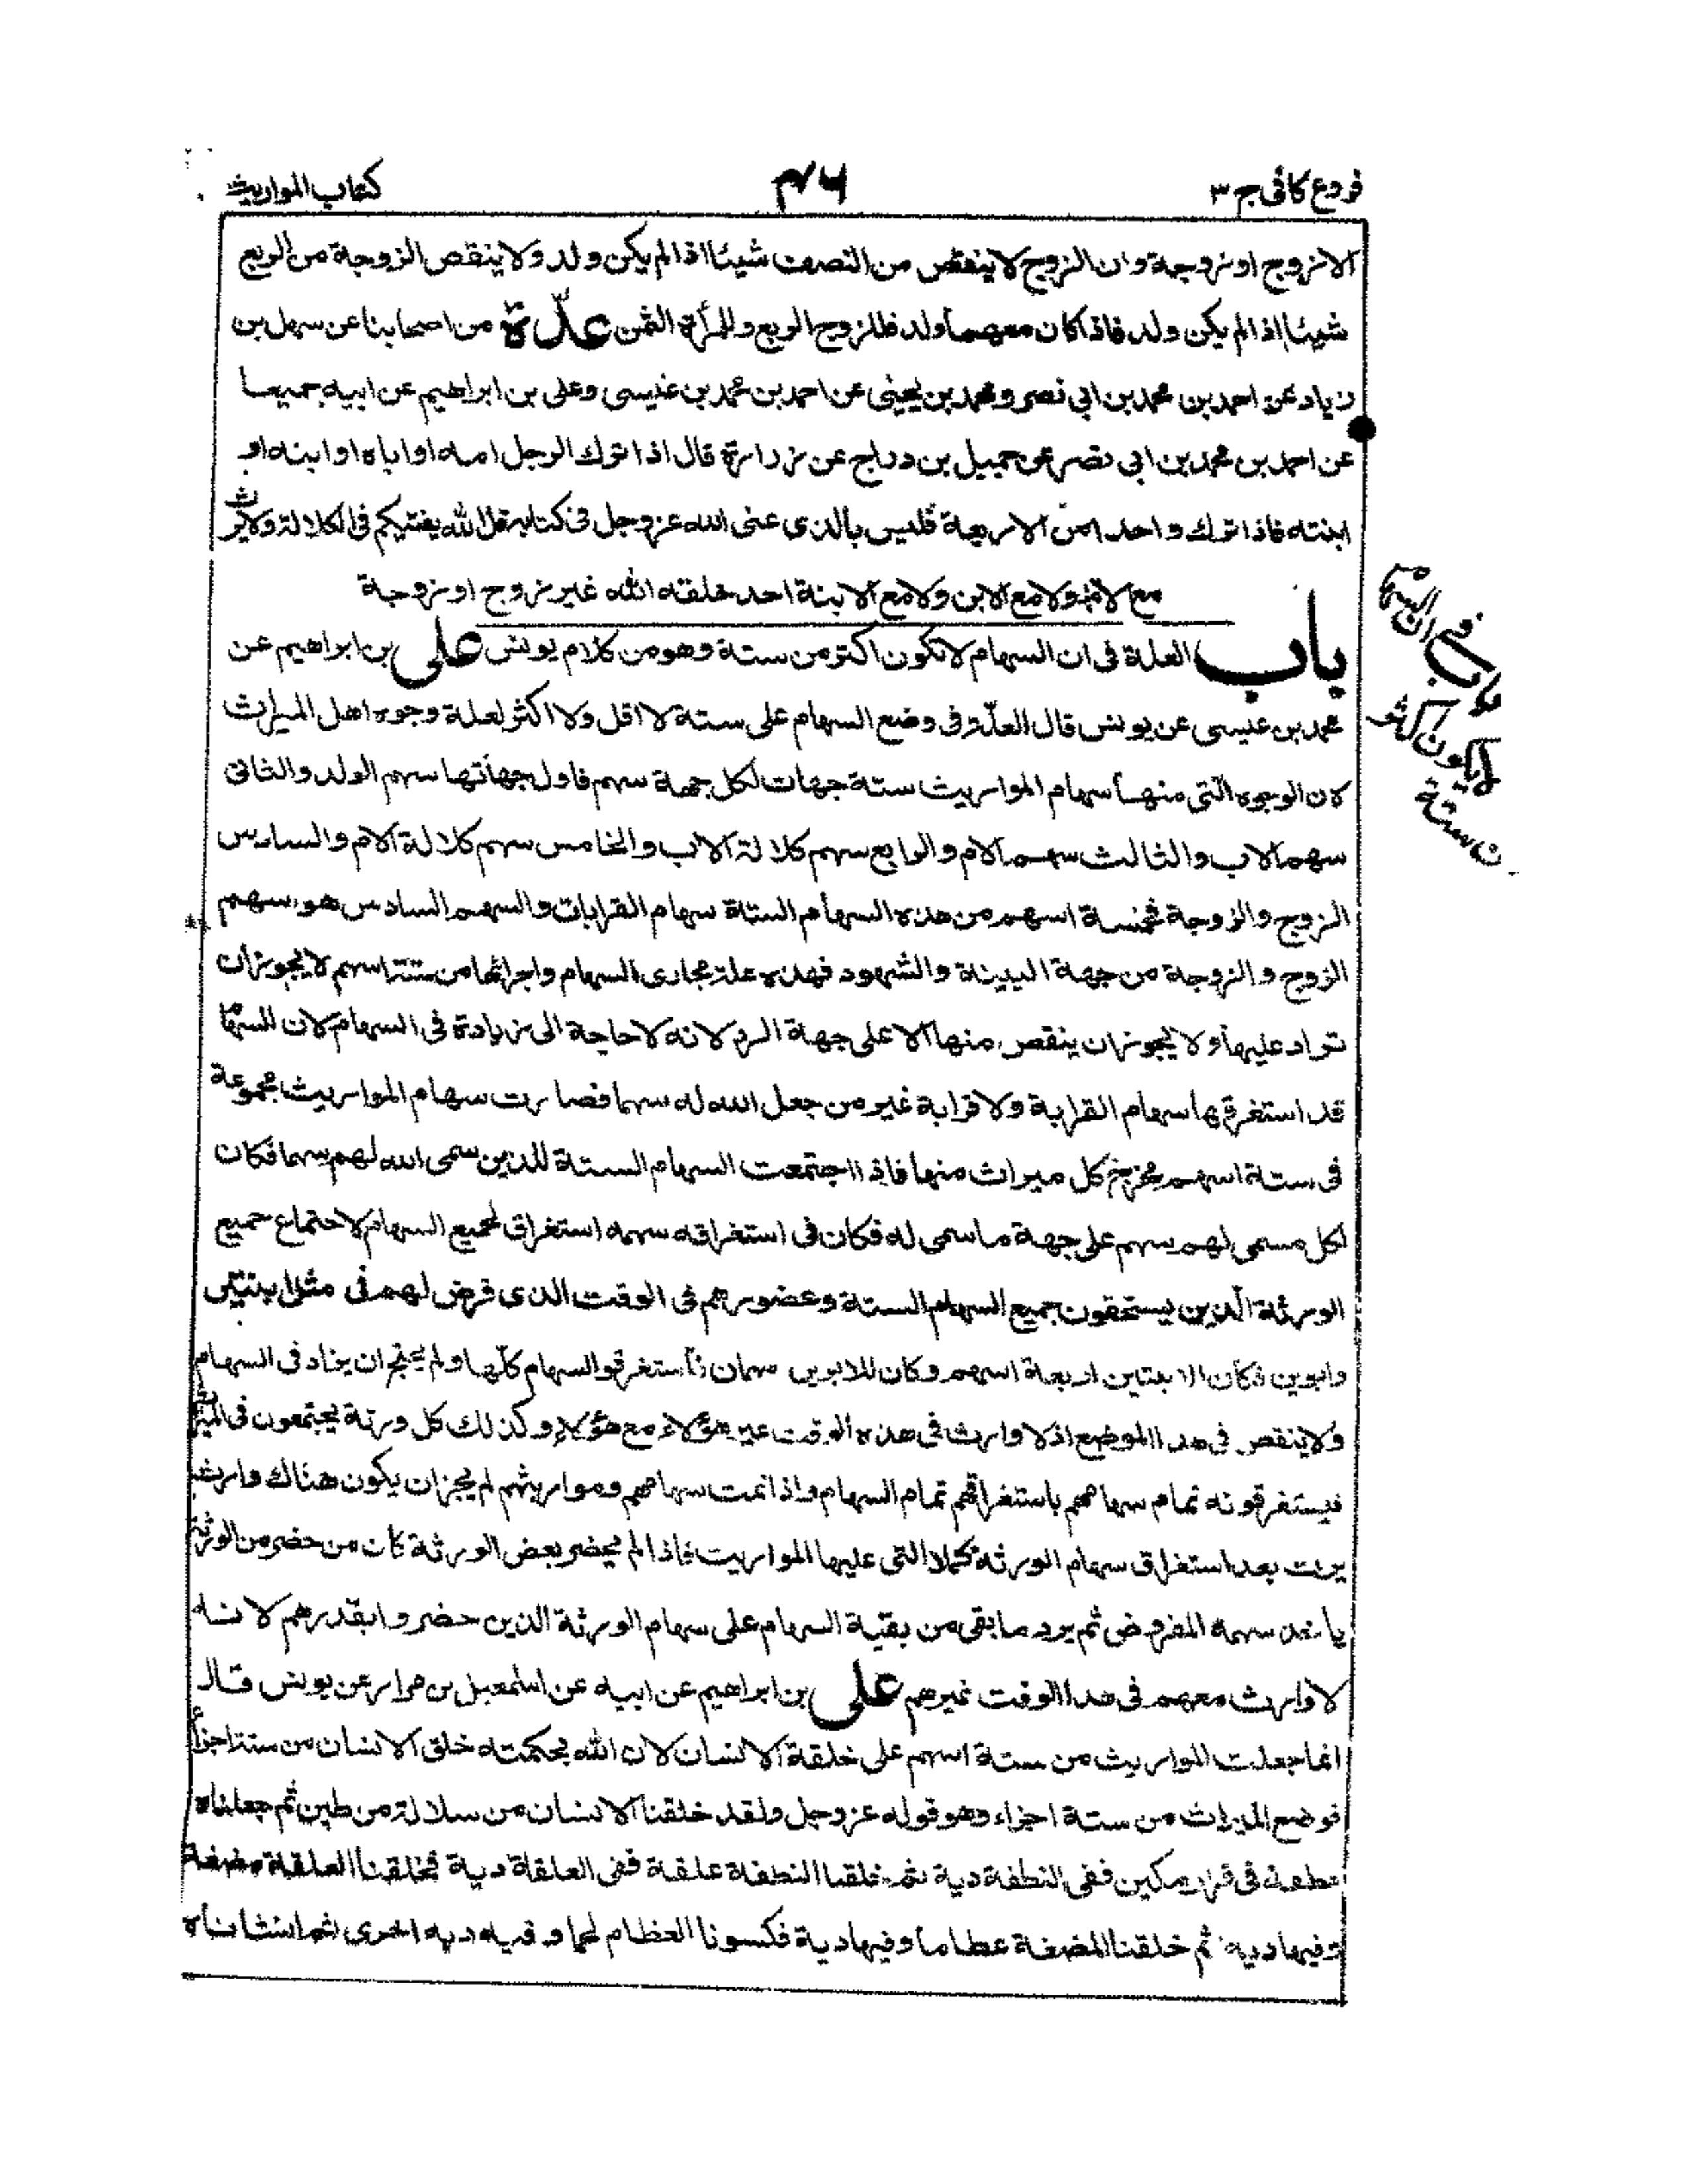 فروع كافى ج ٣
٤٦
كتاب المواريث
الا زوج او زوجة وان الزوج لا ينقص من النصف شيئا اذا لم يكن ولد ولا ينقص الزوجة من الربع
شيئا اذا لم يكن ولد فاذا كان معهما ولد فللزوج الربع وللمرأة الثمن عدّة من اصحابنا عن سهل بن
زياد عن احمد بن محمد بن ابى نصر ومحمد بن يحيى عن احمد بن محمد بن عيسى وعلى بن ابراهيم عن ابيه جميعا
عن احمد بن محمد بن ابى نصر عن جميل بن دراج عن زرارة قال اذا ترك الرجل امه او اباه او ابنه او
ابنته فاذا ترك واحدا من الاربعة فليس بالذى عنى الله عز وجل فى كتابه قل الله يفتيكم فى الكلالة ولا يرث
مع الام ولا مع الابن ولا مع الابنة احد خلقه الله غير زوج او زوجة
باب العلة فى ان السهام لا تكون اكثر من ستة وهو من كلام يونس على بن ابراهيم عن
محمد بن عيسى عن يونس قال العلّة فى وضع السهام على ستة لا اقل ولا اكثر لعلة وجوه اهل الميراث
لان الوجوه التى منها سهام المواريث ستة جهات لكل جهة سهم فاول جهاتها سهم الولد والثانى
سهم الاب والثالث سهم الام والرابع سهم كلالة الاب والخامس سهم كلالة الام والسادس
الزوج والزوجة فخمسة اسهم من هذه السهام الستة سهام القرابات والسهم السادس هو سهم
الزوج والزوجة من جهة البينة والشهود فهذه علة مجارى السهام واجرائها من ستة اسهم لا يجوز ان
تزاد عليها ولا يجوز ان ينقص منها الا على جهة الرد لانه لا حاجة الى زيادة فى السهام لان السهام
قد استغرقها سهام القرابة ولا قرابة غير من جعل الله له سهما فصارت سهام المواريث مجموعة
فى ستة اسهم مخرج كل ميراث منها فاذا اجتمعت السهام الستة للذين سمى الله لهم سهما فكان
لكل مسمى لهم سهم على جهة ما سمى له فكان فى استغراقه سهمه استغراق لجميع السهام لاجتماع جميع
الورثة الّذين يستحقون جميع السهام الستة وحضورهم فى الوقت الذى فرض لهم فى مثل ابنتين
وابوين فكان للابنتين اربعة اسهم وكان للابوين سهمان فاستغرقوا السهام كلّها ولم يحتج ان يزاد فى السهام
ولا ينقص فى هذا الموضع اذ لا وارث فى هذه الوقت غير هؤلاء مع هؤلاء وكذلك كل ورثة يجتمعون فى الميراث
فيستغرقونه تمام سهامهم باستغراقهم تمام السهام واذا تمت سهامهم ومواريثهم لم يجز ان يكون هناك وارث
يرث بعد استغراق سهام الورثة كملا التى عليها المواريث فاذا لم يحضر بعض الورثة كان من حضر من الورثة
يأخذ سهمه المفروض ثم يرد ما بقى من بقية السهام على سهام الورثة الذين حضروا بقدرهم لانه
لا وارث معهم فى هذا الوقت غيرهم على بن ابراهيم عن ابيه عن اسمعيل بن مرار عن يونس قال
انما جعلت المواريث من ستة اسهم على خلقة الانسان لان الله بحكمته خلق الانسان من ستة اجزأ
فوضع الميراث من ستة اجزاء وهو قوله عز وجل ولقد خلقنا الانسان من سلالة من طين ثم جعلناه
نطفة فى قرار مكين ففى النطفة دية ثم خلقنا النطفة علقة ففى العلقة دية فخلقنا العلقة مضغة
وفيها دية ثم خلقنا المضغة عظاما وفيها دية فكسونا العظام لحما وفيه دية اخرى ثم انشأناه
باب فى ان السهام
لا يكون اكثر
من ستة